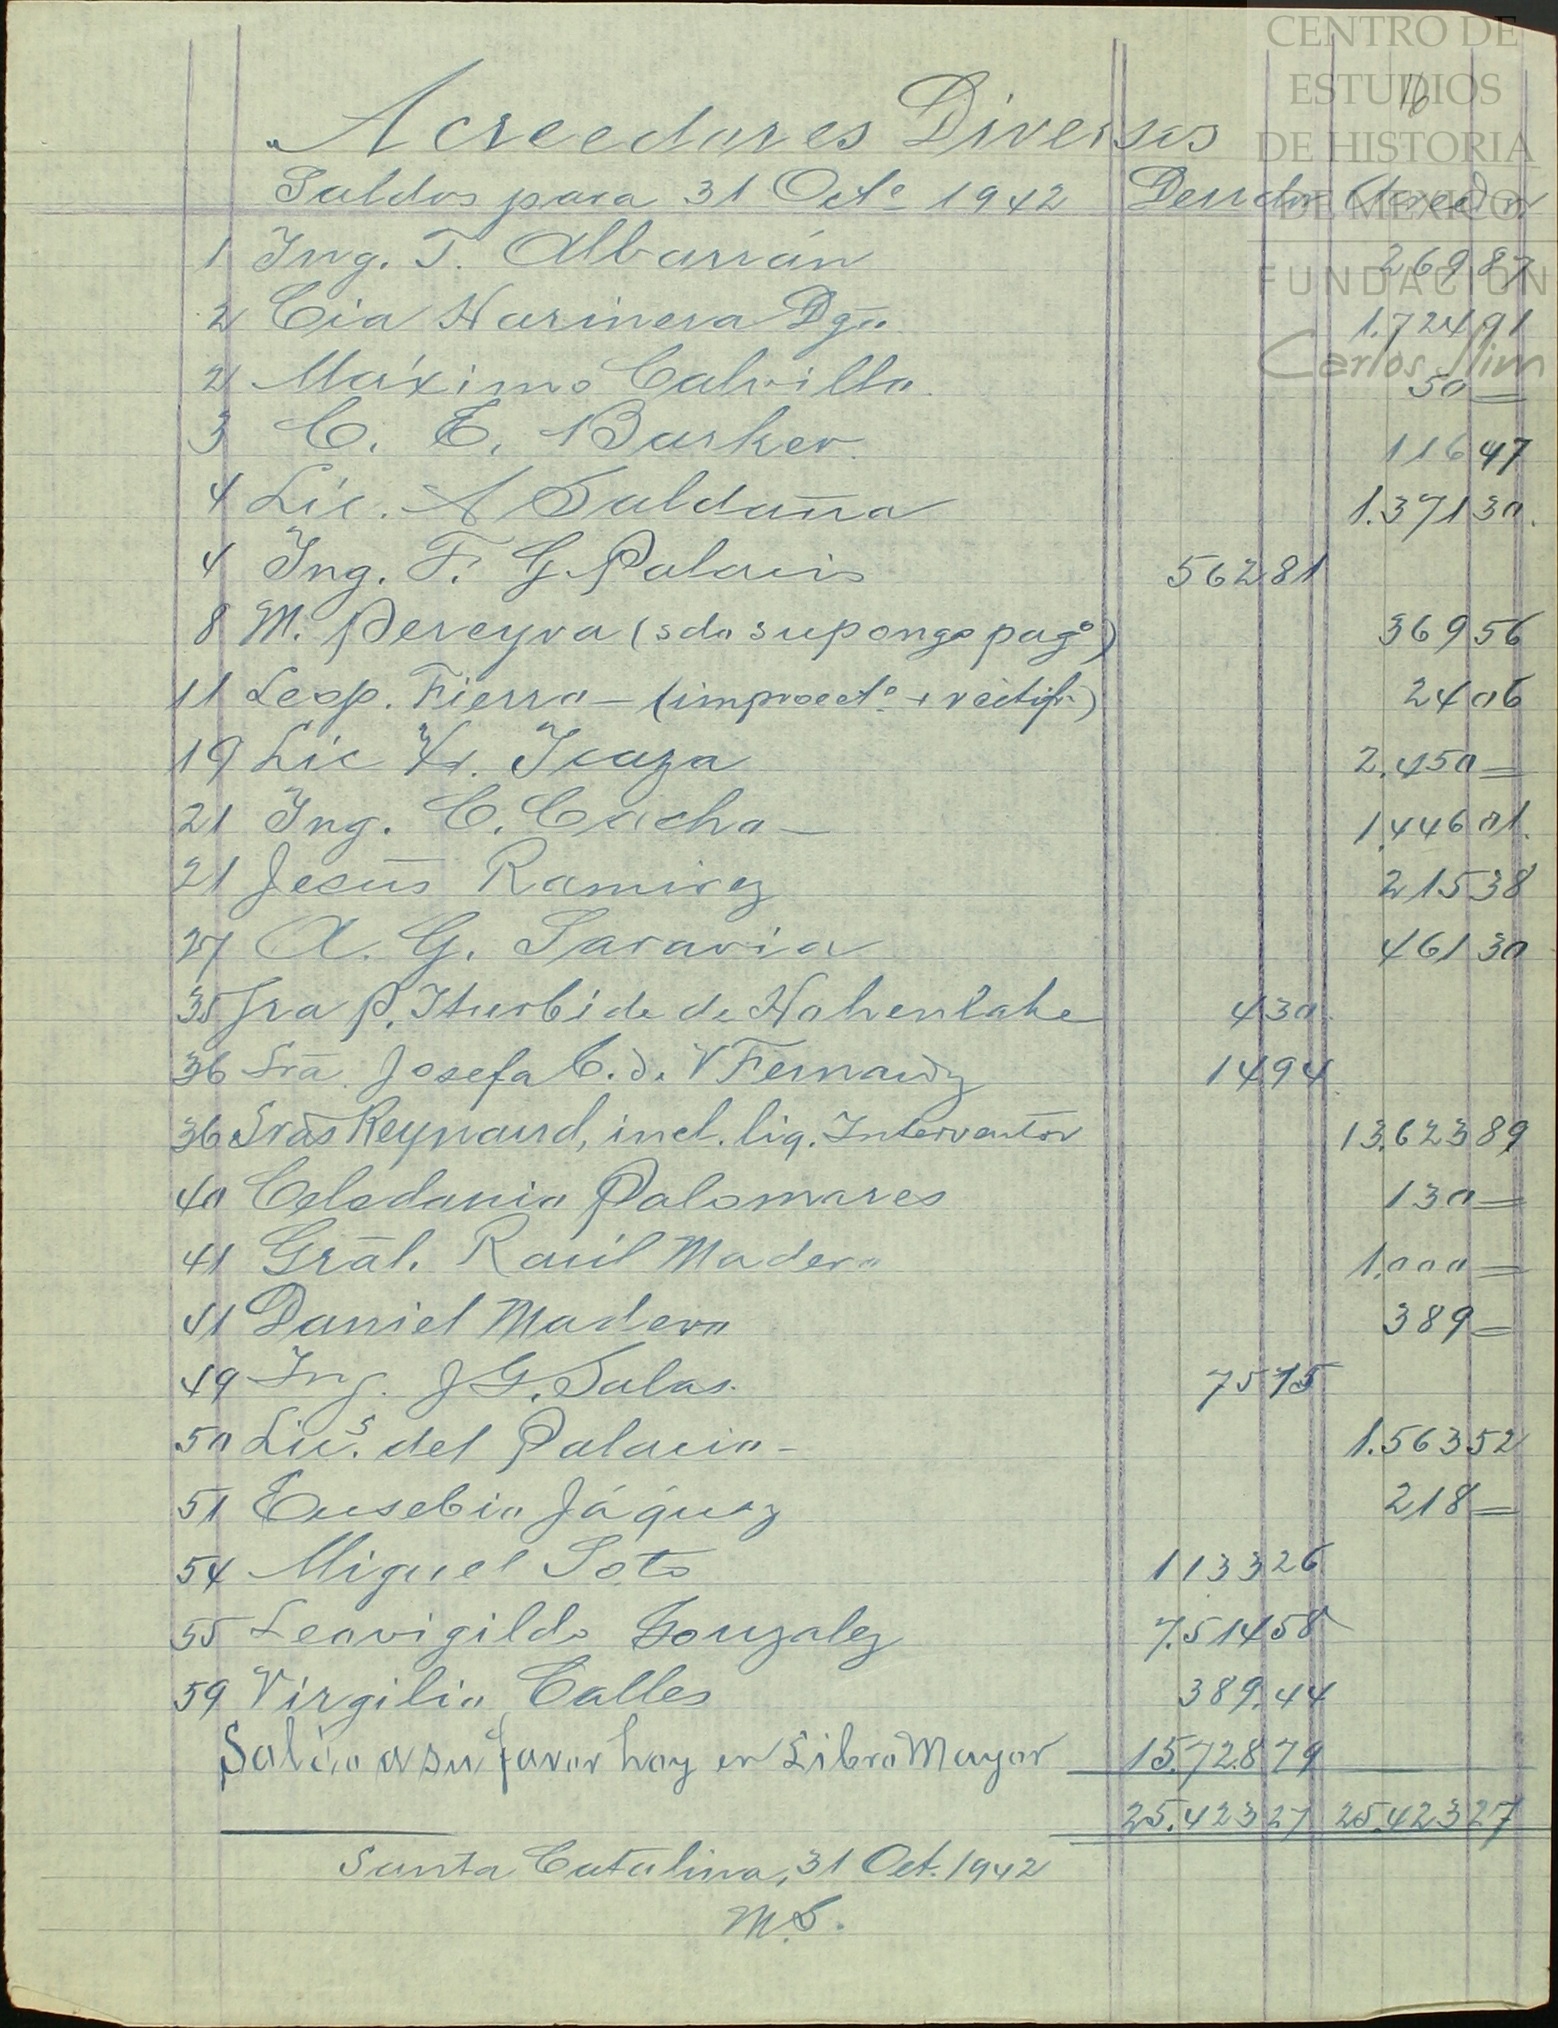 CENTRO DE
ESTUDIOS
DE HISTORIA
DE MEXICO
FUNDACION
Carlos Slim
16
Acreedores Diversos
Saldos para 31 Oct.º 1942 Deudor Acreedor
1 Ing. T. Albarrán 269 87
2 Cia Harinera Dgo. 1.724 91
2 Máximo Calvillo. 50 =
3 C. E. Barker. 116 47
4 Lic. A Saldaña 1.371 30.
4 Ing. F. G. Palacio 562 81
8 M. Pereyra (sdo supongo pagº) 369 56
11 Leop. Fierro - (improcdº + rectifn) 24 06
19 Lic Icaza 2.450 =
21 Ing. C. Cocho - 1.446 01.
21 Jesús Ramirez 215 38
27 A. G. Saravia 461 30
35 Sra P. Iturbide de Hohenlohe 4 30.
36 Sra. Josefa C. d. V Fernandz 14 94.
36 Sras Reynaud, incl. liq. Interventor 13.623 89
40 Celedonio Palomares 130 =
41 Gral. Raúl Madero 1.000 =
41 Daniel Madero 389 =
49 Ing. J G. Salas. 75 15
50 Lics. del Palacio - 1.563 52
51 Eusebio Jáquez 218 =
54 Miguel Soto 1133 26
55 Leovigildo Gonzalez 7.514 58
59 Virgilio Calles 389.44
Saldo a su favor hoy en Libro Mayor 15.728 79
25.423 27 25.423 27
Santa Catalina, 31 Oct. 1942
M.S.